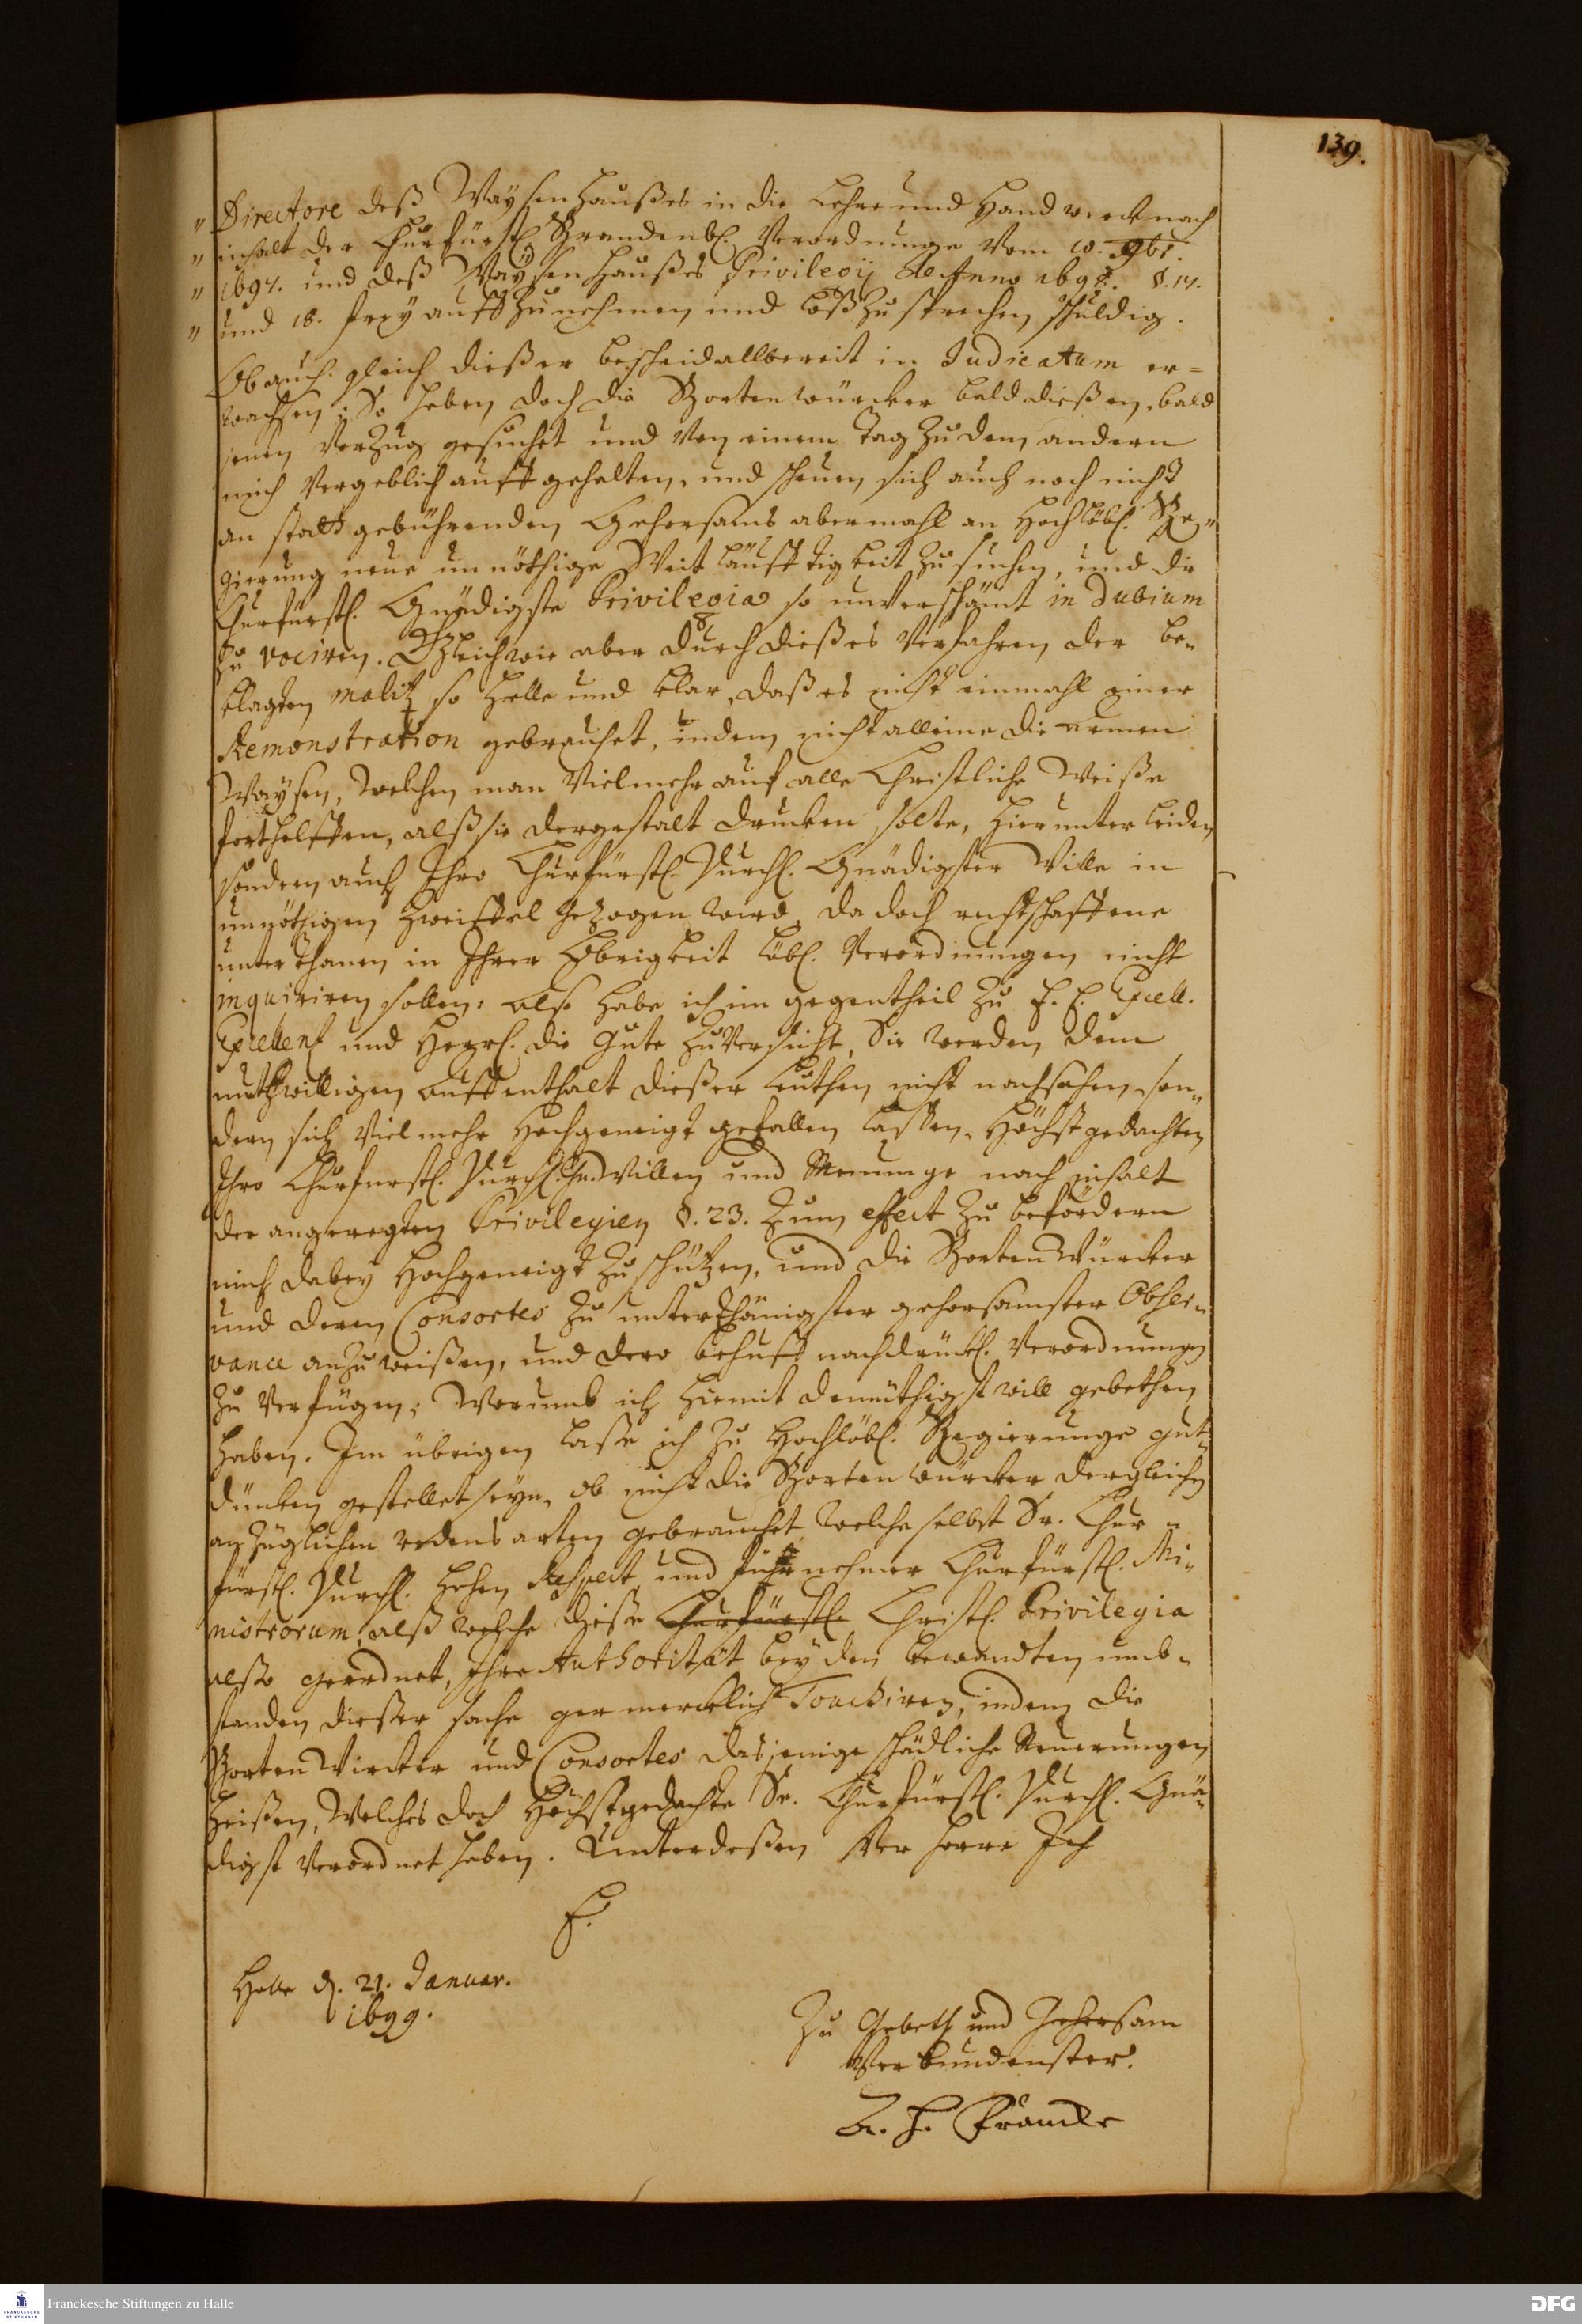 139.
" Directore deß Waysenhaußes in die Lehre und Handwerck nach
" inhalt der Churfürstl. Brandenbl. Verordnunge vom 10. 9br.
" 1697. und deß Waysenhaußes Privilegij de Anno 1698. §. 17.
" und 18. frey auffzunehmen und loßzusprechen schuldig.
Ob auch gleich dießer bescheid allbereit in Judicatum er=
wachsen; So haben doch die Bortenwürcker bald dießen, bald
jenen Verzug gesuchet und von einem Tag zu dem andern
mich vergeblich auffgehalten, und scheuen sich auch noch nicht
an statt gebührenden Gehorsams abermahl an Hochlöbl. Re=
gierung neue unnöthige Weitläufftigkeit zu suchen, und die
Churfürstl. Gnädigste Privilegia so unverschämt in dubium
zu vociren. Gleichwie aber durch dießes Verfahren der be=
klagten malitz so helle und klar, daß es nicht einmahl einer
Remonstration gebrauchet, indem nicht alleine die armen
Waysen, welchen man vielmehr auf alle Christliche Weiße
forthelffen, alß sie dergestalt drucken solte, hierunter leiden,
sondern auch Ihro Churfürstl. Durchl. Gnädigster Wille in
unnöthigen Zweiffel gezogen wird, da doch rechtschaffene
unterthanen in Ihrer Obrigkeit löbl. Verordnungen nicht
inquiriren sollen: also habe ich im gegentheil zu E. E. Excell.
Excellenz und Herrl. die gute Zuversicht, Sie werden dem
muthwilligen auffenthalt dießer leuthen nicht nachsehen, son=
dern sich vielmehr Hochgeneigt gefallen lassen, Höchstgedachten
Ihro Churfürstl. Durchl. Gn. Willen und Meinunge nach inhalt
der angeregten Privilegien §. 23. zum effect zu befördern
mich dabey Hochgeneigt zu schützen, und die Bortenwürcker
und deren Consortes zu unterthänigster gehorsamster Obser=
vance anzuweißen, und dero behuff nachdrückl. Verordnungen
zu verfügen, Warumb ich hiemit demüthigst will gebethen
haben. Im übrigen lasse ich zu Hochlöbl. Regierunge gut=
düncken gestellet seyn, ob nicht die Bortenwürcker dergleichen
anzüglichen redens arten gebrauchet, welche selbst Sr. Chur=
fürstl. Durchl. hohen Respect und fürnehmer Churfürstl. Mi=
nistrorum, alß welche diese Churfürstl. Christl. Privilegia
also geordnet, Ihre Authorität bey den bewandten umb=
standen dießer sache gar mercklich Touchiren, indem die
Bortenwircker und Consortes dasjenige schädliche Neuerungen
heißen, welches doch Höchstgedachte Sr. Churfürstl. Durchl. Gnä=
digst verordnet haben. Unterdeßen verharre Ich
E.
Halle d. 21. Januar.
1699.
Zu Gebeth und Gehorsam
Verbundenster.
A. H. Francke
Franckesche Stiftungen zu Halle
DFG